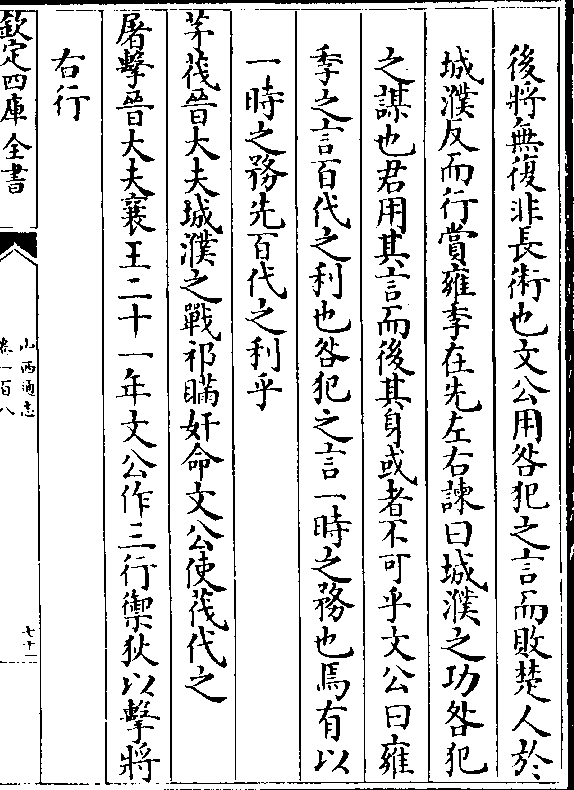 後將無復非長術也文公用咎犯之言而敗楚人於
城濮反而行賞雍季在先左右諫曰城濮之功咎犯
之謀也君用其言而後其身或者不可乎文公曰雍
季之言百代之利也咎犯之言一時之務也焉有以
一時之務先百代之利乎
茅茷晉大夫城濮之戰祁瞞奸命文公使茷代之
屠擊晉大夫襄王二十一年文公作三行禦狄以擊將
右行
欽定四庫全書
山西通志
卷一百八
七十